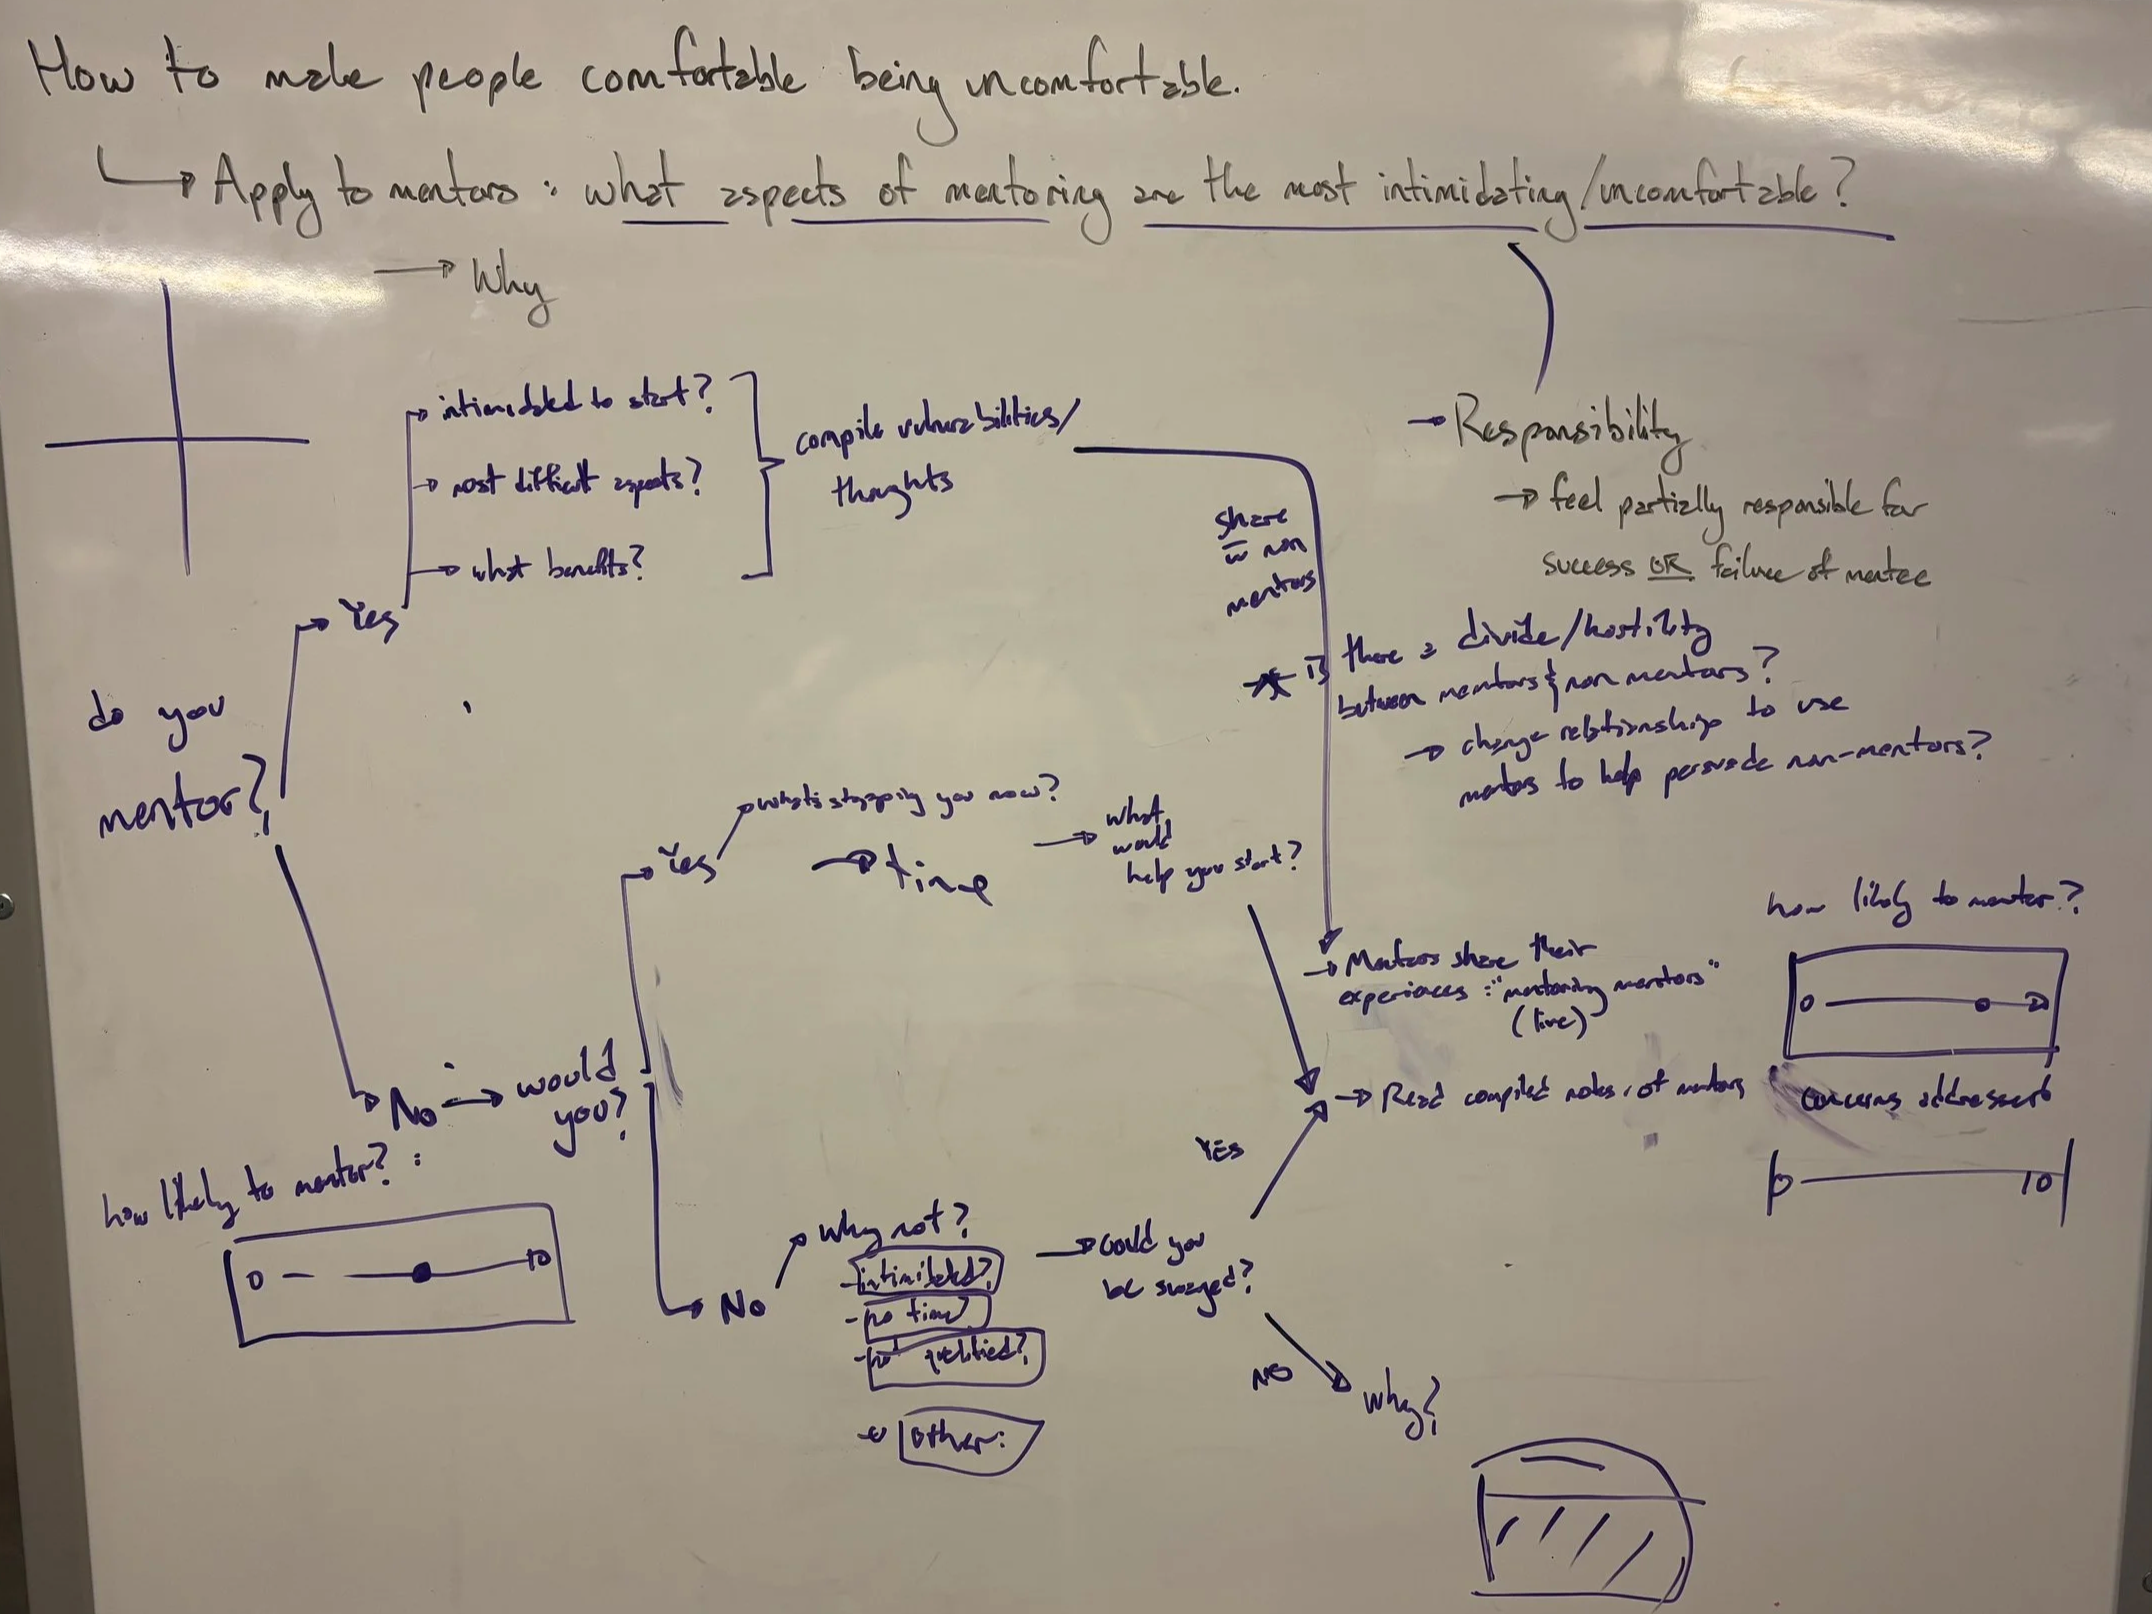 How to make people comfortable being uncomfortable.
Apply to mentors : what aspects of mentoring are the most intimidating/uncomfortable?
Why
intimidated to start?
most difficult aspects?
what benefits?
compile vulnerabilities/
thoughts
Responsibility
feel partially responsible for
success OR failure of mentee
share
w non
mentors
is there a divide/hostility
between mentors & non mentors?
change relationship to use
mentors to help persuade non-mentors?
do you
mentor?
Yes
No
would
you?
Yes
what's stopping you now?
time
what
would
help you start?
Mentors share their
experiences : "mentoring mentors"
(live)
Read compiled notes of mentors
how likely to mentor?
0
concerns addressed
0 10
how likely to mentor? :
0 10
No
why not?
- intimidated?
- no time?
- not qualified?
other:
could you
be swayed?
YES
NO
why?